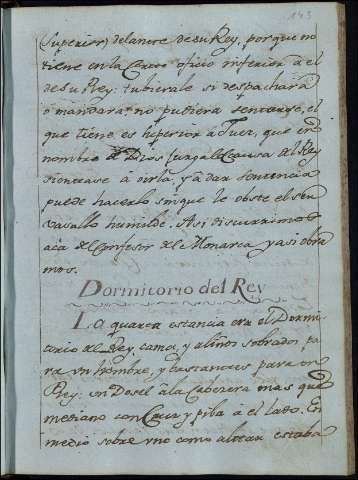 143
(Superior) delante de su Rey, porque no
tiene en la Corte oficio inferior à el
de su Rey: tubierale si despachara
ò mandara: no pudiera sentarse, el
que tiene es superior à Juez, que en
nombre de Dios juzga la Causa del Rey
sientase à oirla, y à dar sentencia
puede hacerlo sin que le obste el ser
vasallo humilde. Asi discurrimos
acà el Confesor del Monarca, y asi obra
mos.
Dormitorio del Rey
La quarta estancia era el Dormi
torio del Rey, cama, y aliños sobrados pa
ra un hombre, y bastantes para un
Rey: un Dosel à la Cabezera mas que
mediano con Cruz y pila à el lado. En
medio sobre uno como altar estaba